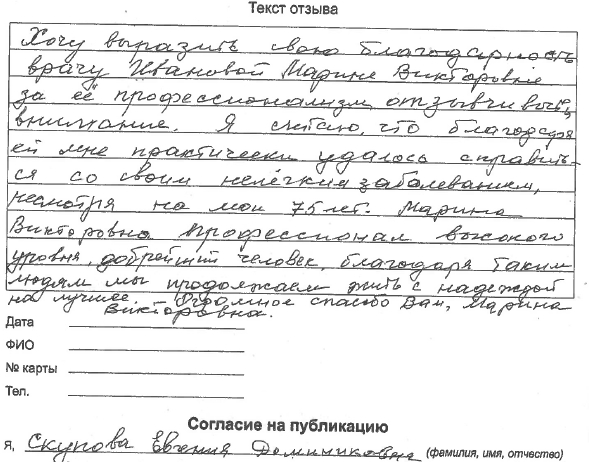 Текст отзыва
Хочу выразить свою благодарность
врачу Ивановой Марине Викторовне
за её профессионализм, отзывчивость,
внимание. Я считаю, что благодаря
ей мне практически удалось справить-
ся со своим нелёгким заболеванием,
несмотря на мои 75 лет. Марина
Викторовна профессионал высокого
уровня, добрейший человек, благодаря таким
людям мы продолжаем жить с надеждой
на лучшее. Огромное спасибо Вам, Марина
Викторовна.
Дата
ФИО
№ карты
Тел.
Согласие на публикацию
я, Скупова Евгения Доминиковна (фамилия, имя, отчество)